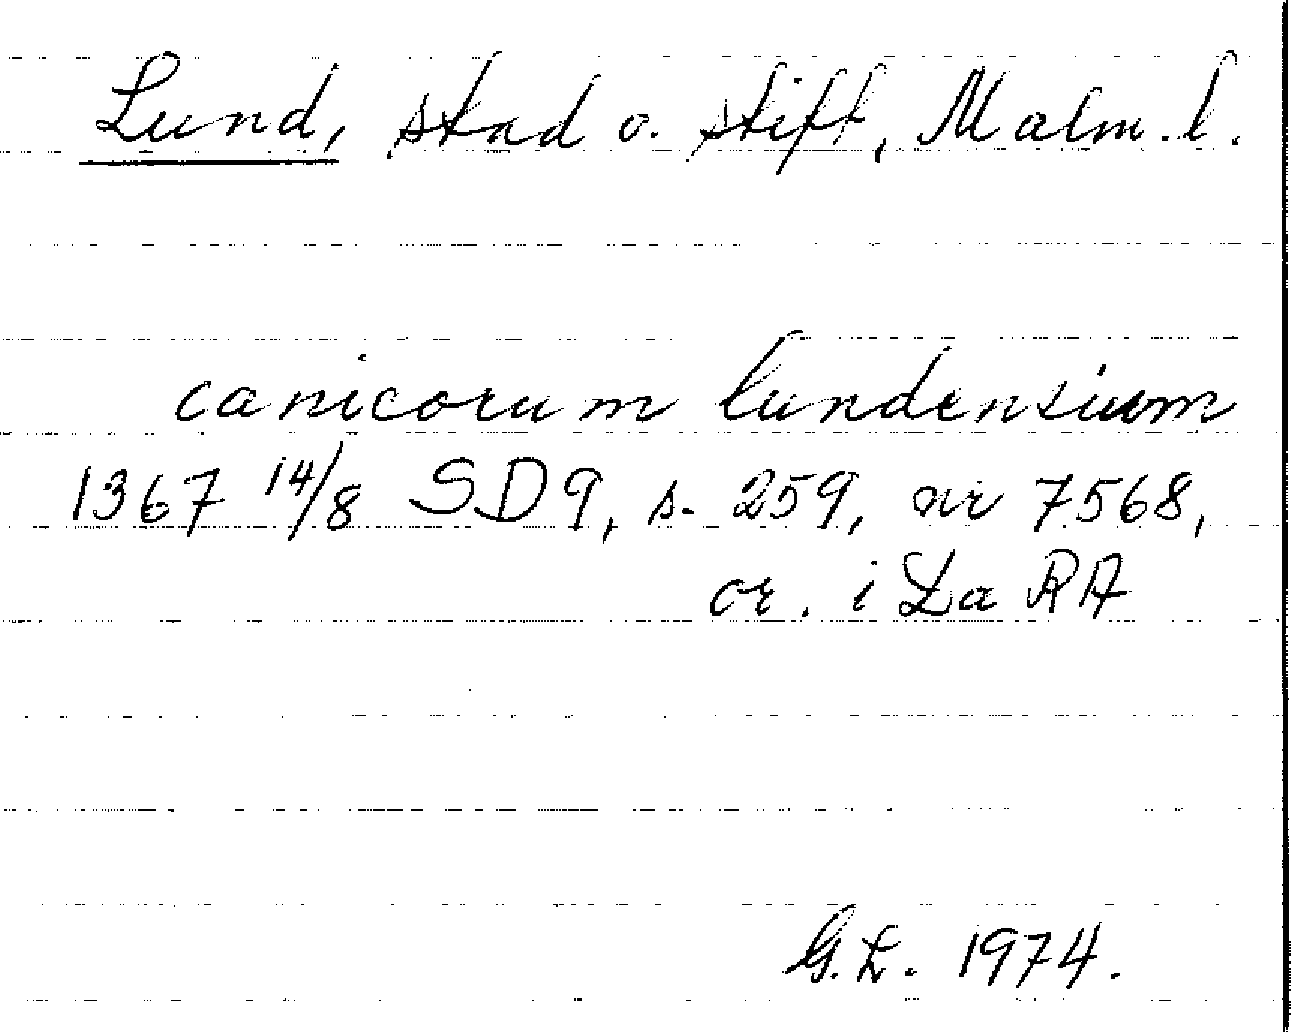 Lund, stad o. stift, Malm. l.
canicorum lundensium
1367 14/8 SD 9, s. 259, nr 7568,
or. i La RA
G.L. 1974.